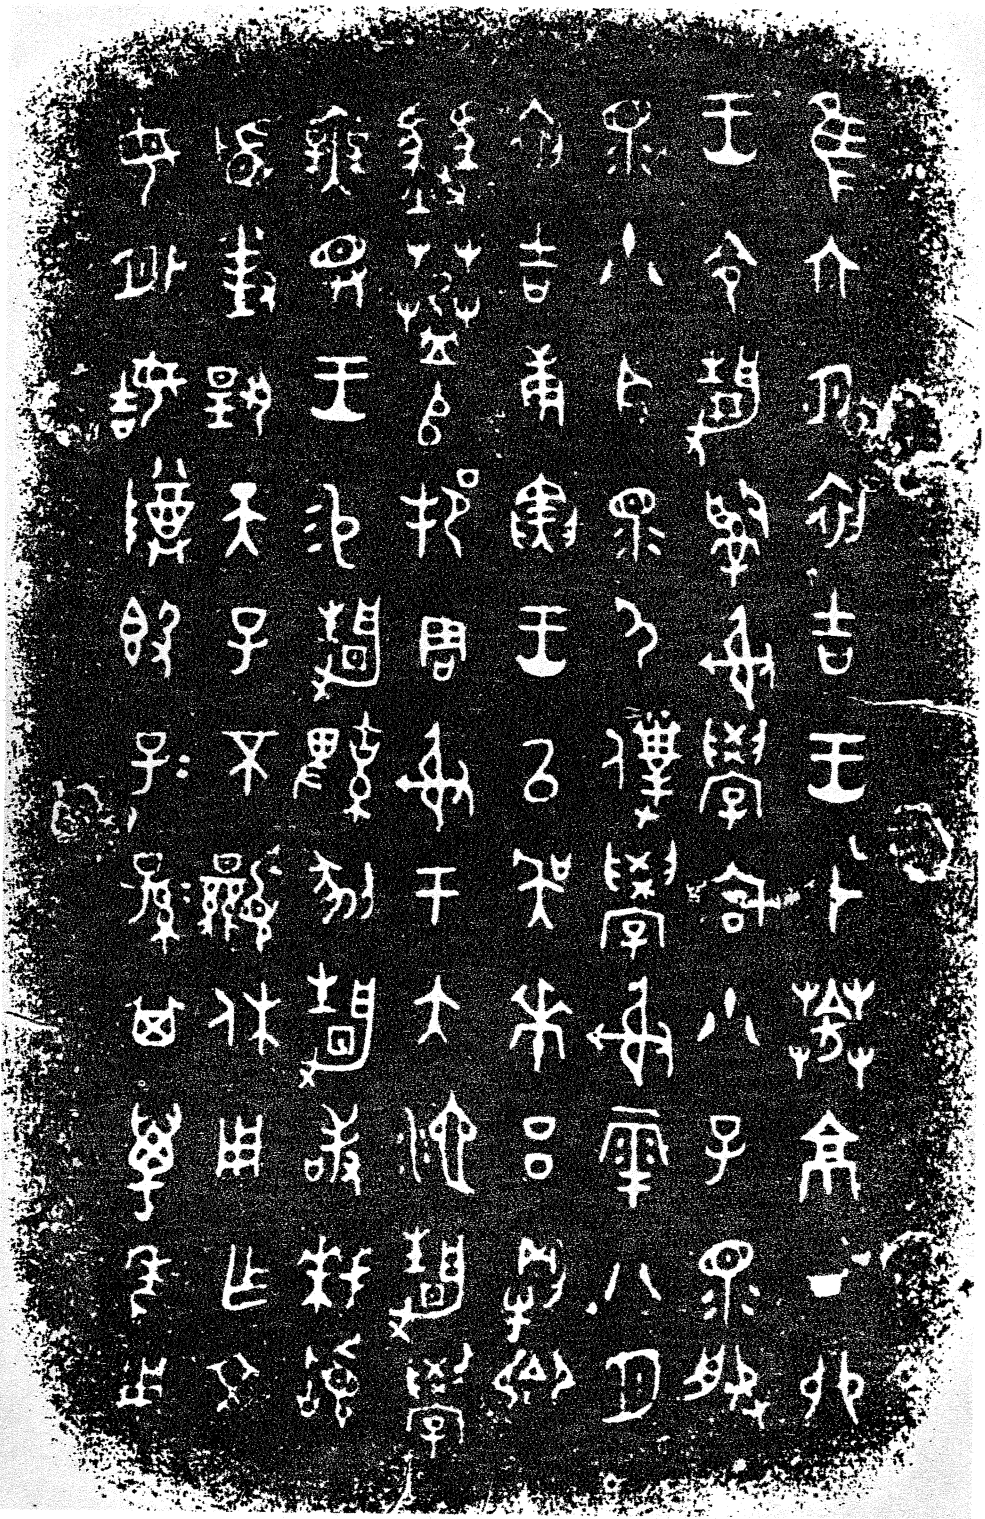 隹六月初吉王才𦵯京丁卯
王令靜𤔲射學宮小子眔服
眔小臣眔尸僕學射雩八月
初吉庚寅王以吳𠦪呂犅卿
𠂤射于大池靜學
無王易靜鞞剢靜敢拜𩒨
首對揚天子不顯休用乍
文母外姞尊𣪘子=孫=其萬年用